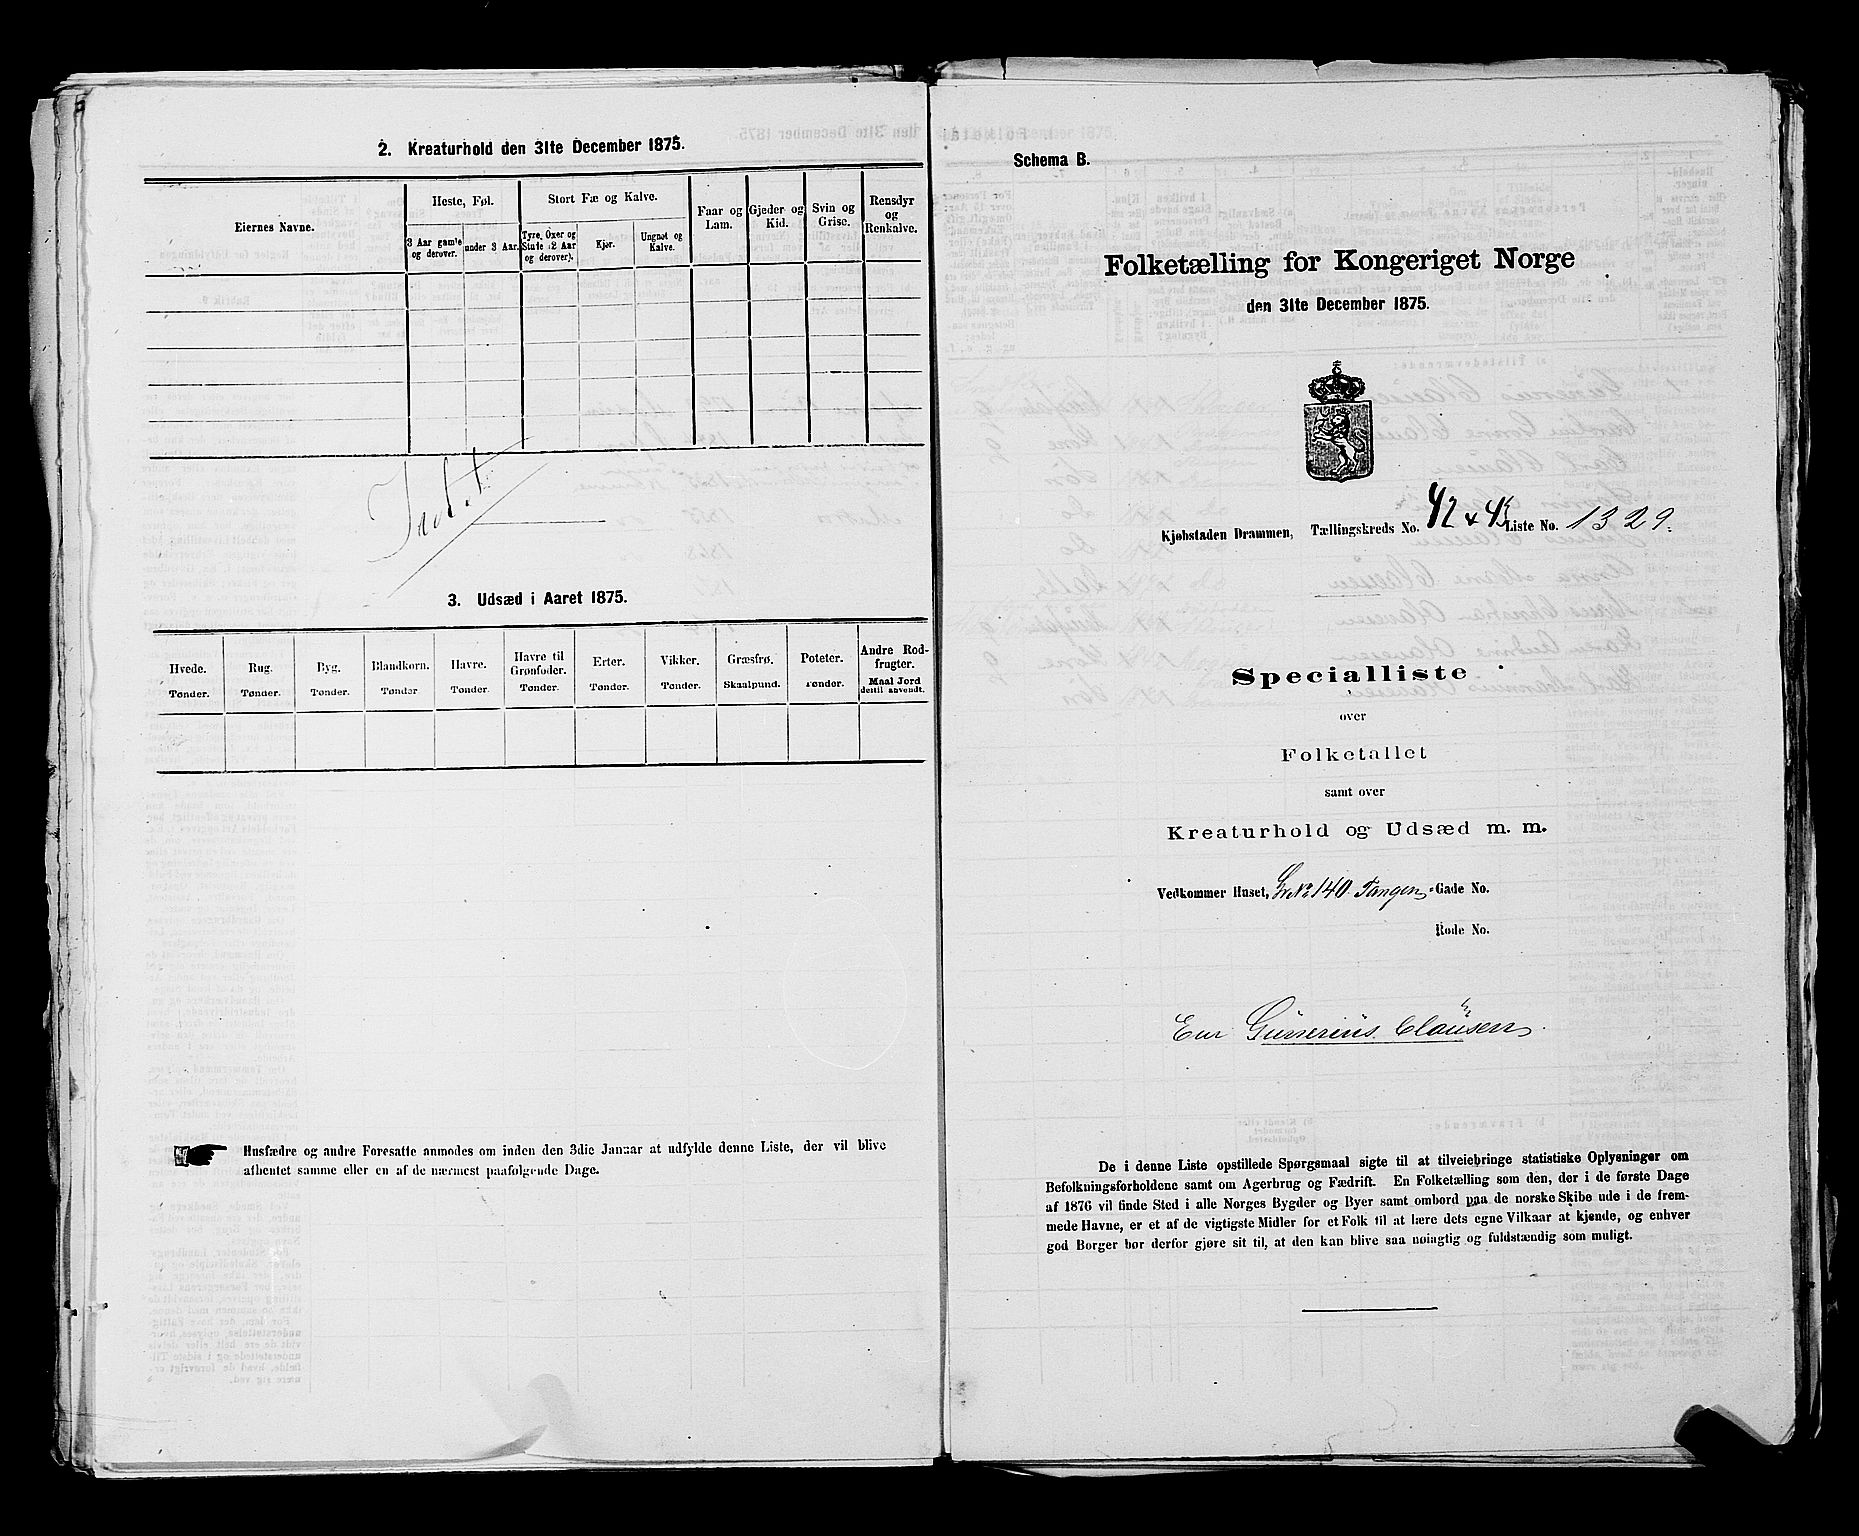 2. Kreaturhold den 31te December 1875.
Eiernes Navne.
Heste, Føl.
Stort Fæ og Kalve.
Faar og Lam.
Gjeder og Kid.
Svin og Grise.
Rensdyr og Renkalve.
3 Aar gamle og derover.
under 3 Aar.
Tyre, Oxer og Stude (2 Aar og derover).
Kjør.
Ungnøt og Kalve.
Intet
3. Udsæd i Aaret 1875.
Hvede. Tønder.
Rug. Tønder.
Byg. Tønder.
Blandkorn. Tønder
Havre. Tønder.
Havre til Grønfoder. Tønder.
Erter. Tønder.
Vikker. Tønder.
Græsfrø. Skaalpund.
Poteter. Tønder.
Andre Rodfrugter. Maal Jord dertil anvendt.
Husfædre og andre Foresatte anmodes om inden den 3die Januar at udfylde denne Liste, der vil blive
afhentet samme eller en af de nærmest paafølgende Dage.
Schema B.
Folketælling for Kongeriget Norge
den 31te December 1875.
Kjøbstaden Drammen, Tællingskreds No. 42 & 43 Liste No. 1329.
Specialliste
over
Folketallet
samt over
Kreaturhold og Udsæd m. m.
Vedkommer Huset, Gr. No 140 Tangen -Gade No.
Rode No.
Eier Gunerius Clausen.
De i denne Liste opstillede Spørgsmaal sigte til at tilveiebringe statistiske Oplysninger om
Befolkningsforholdene samt om Agerbrug og Fædrift. En Folketælling som den, der i de første Dage
af 1876 vil finde Sted i alle Norges Bygder og Byer samt ombord paa de norske Skibe ude i de frem-
mede Havne, er et af de vigtigste Midler for et Folk til at lære dets egne Vilkaar at kjende, og enhver
god Borger bør derfor gjøre sit til, at den kan blive saa nøiagtig og fuldstændig som muligt.